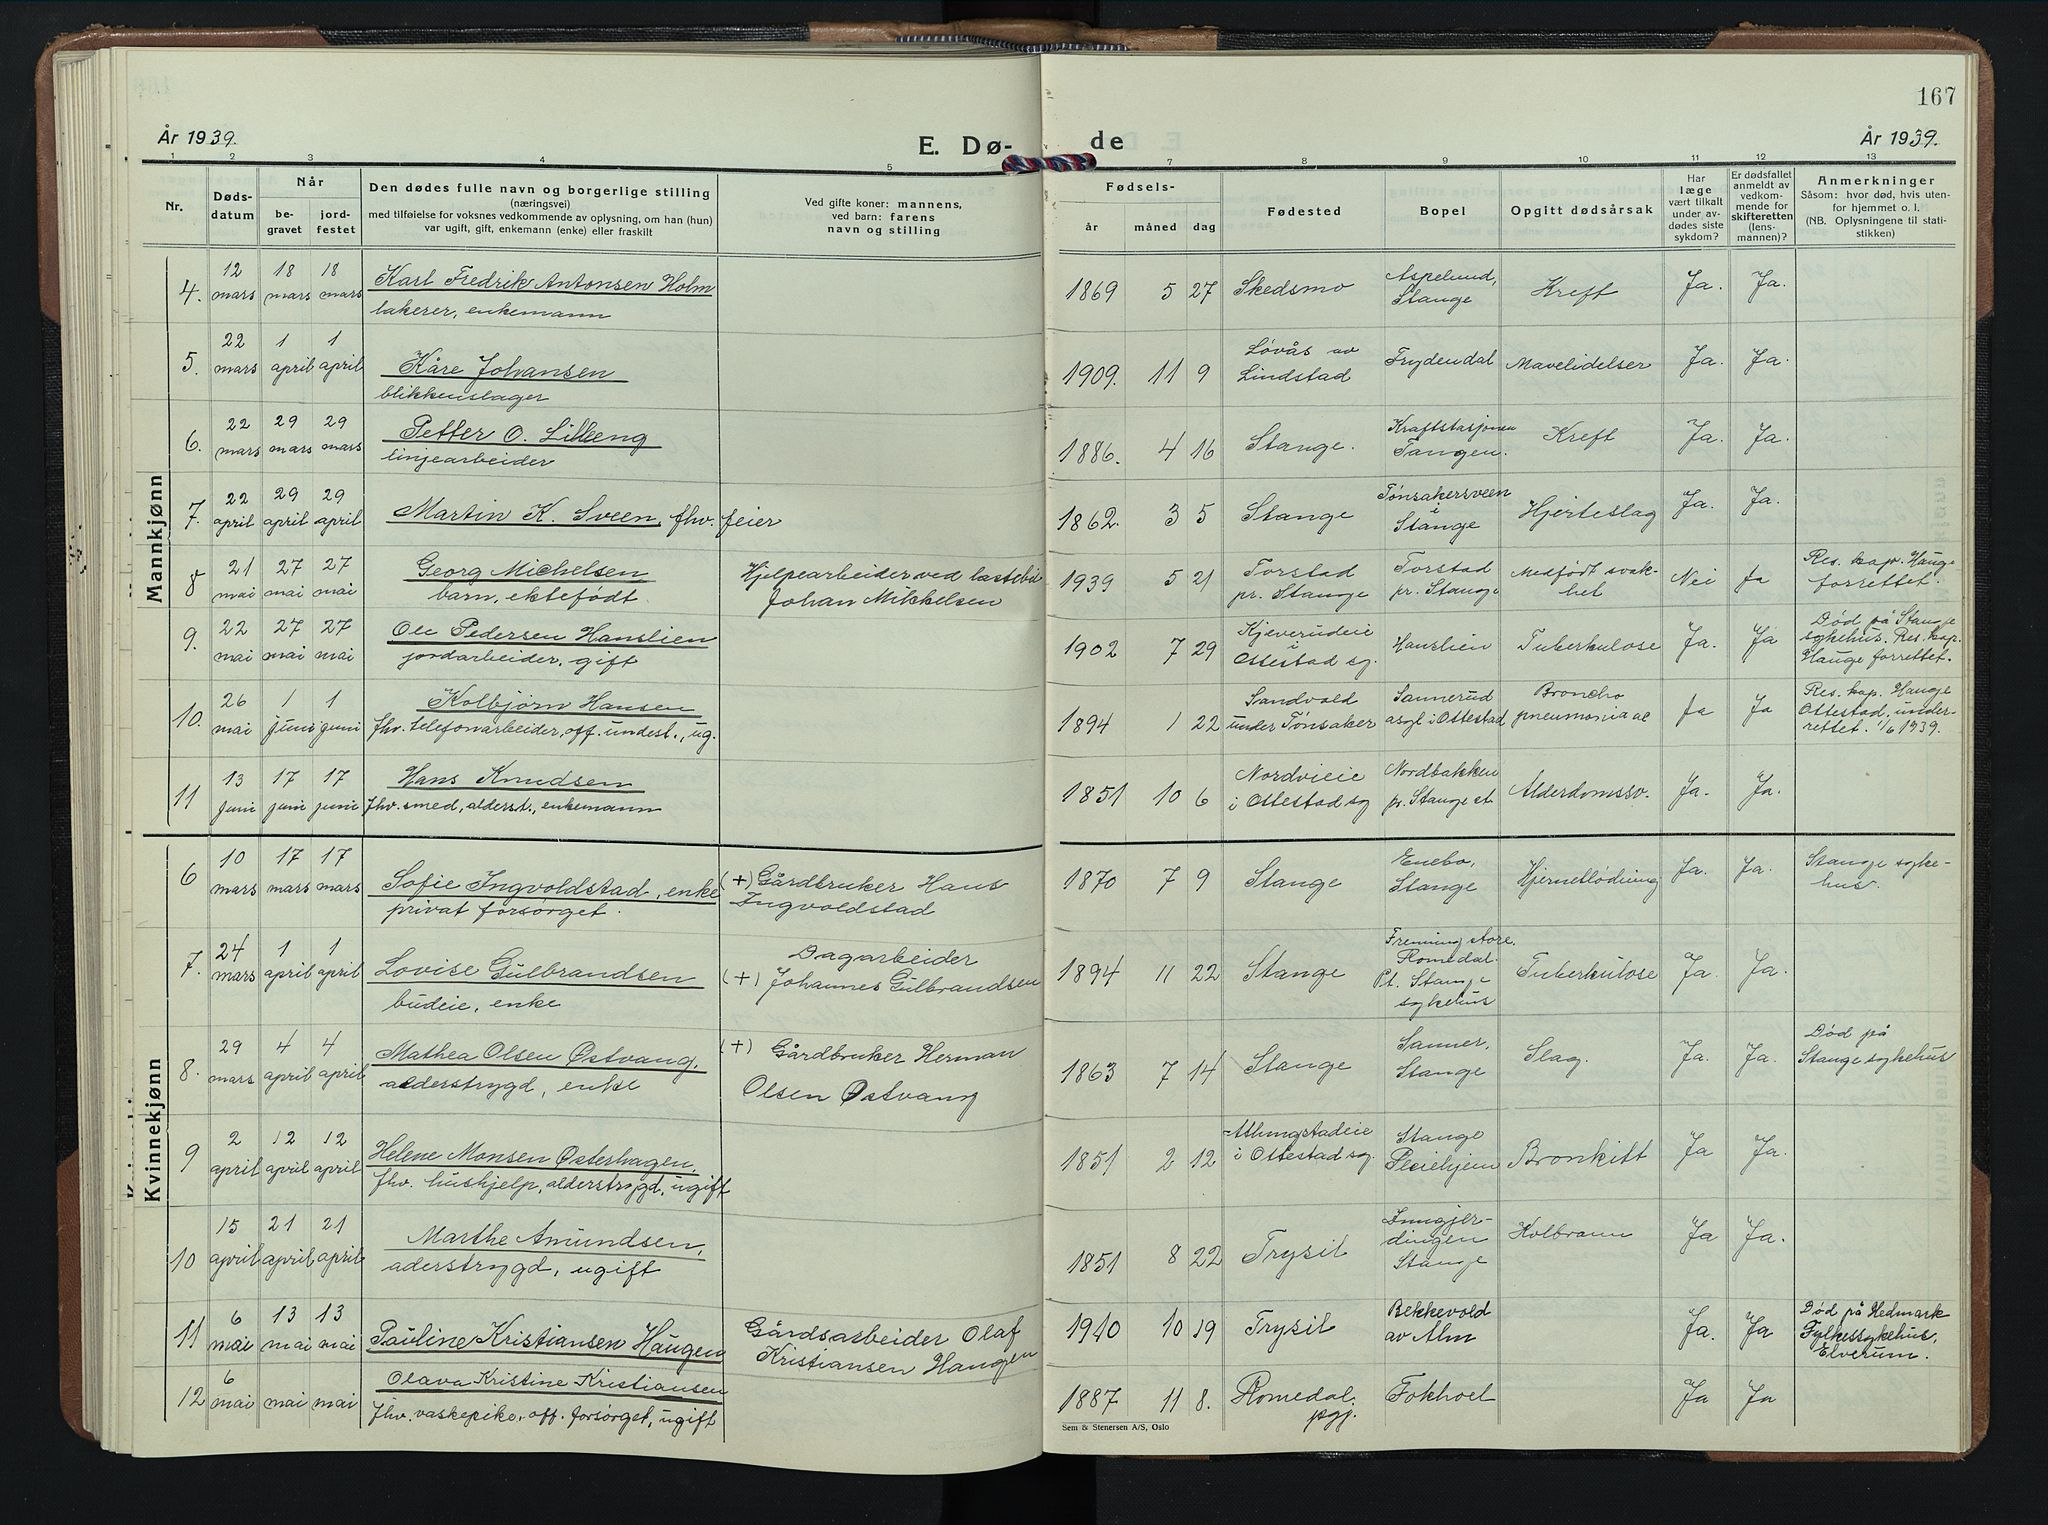 167
År 1939. E. Dø- de År 1939.
1 2 3 4 5 7 8 9 10 11 12 13
Nr.
Døds-
datum
Når
be-
gravet
jord-
festet
Den dødes fulle navn og borgerlige stilling
(næringsvei)
med tilføielse for voksnes vedkommende av oplysning, om han (hun)
var ugift, gift, enkemann (enke) eller fraskilt
Ved gifte koner: mannens,
ved barn: farens
navn og stilling
Fødsels-
år måned dag
Fødested
Bopel
Opgitt dødsårsak
Har
læge
vært tilkalt
under av-
dødes siste
sykdom?
Er dødsfallet
anmeldt av
vedkom-
mende for
skifteretten
(lens-
mannen)?
Anmerkninger
Såsom: hvor død, hvis uten-
for hjemmet o. l.
(NB. Oplysningene til stati-
stikken)
Mannkjønn
4. 12 mars 18 mars 18 mars Karl Fredrik Antonsen Holm 1869 5 27 Skedsmo Aspelund, Stange Kreft Ja. Ja.
lakerer, enkemann
5. 22 mars 1 april 1 april Kåre Johansen 1909. 11 9 Løvås av Lindstad Frydendal Mavelidelser Ja. Ja.
blikkenslager
6. 22 mars 29 mars 29 mars Petter O. Lilleeng 1886. 4 16 Stange. Kraftstasjonen Tangen. Kreft Ja. Ja.
linjearbeider
7. 22 april 29 april 29 april Martin K. Sveen, fhv. feier 1862. 3 5 Stange Tønsakersveen i Stange Hjerteslag Ja. Ja.
8 21 mai 27 mai 27 mai Georg Michelsen Hjelpearbeider ved lastebil 1939 5 21 Torstad pr. Stange Torstad pr. Stange Medfødt svak-het Nei Ja Res. kap. Hauge forrettet.
barn, ektefødt. Johan Mikkelsen
9. 22 mai 27 mai 27 mai Ole Pedersen Hanslien 1902 7 29 Kjeverudeie i Ottestad sg. Hanslien Tuberkulose Ja. Ja Død på Stange sykehus. Res. kap. Hauge forrettet.
jordarbeider, gift
10. 26 mai 1 juni 1 juni Kolbjørn Hansen 1894 1 22 Sandvold under Tønsaker Sannerud asyl i Ottestad Broncho pneumonia ac Ja Ja Res. kap. Hauge Ottestad, under-rettet! 1/6 1939.
fhv. telefonarbeider, off. undest., ug.
11 13 juni 17 juni 17 juni Hans Knudsen 1851 10 6 Nordvieie i Ottestad sg Nordbakken pr. Stange st Alderdomssv. Ja. Ja.
fhv. smed, alderst., enkemann
Kvinnekjønn
6 10 mars 17 mars 17 mars Sofie Ingvoldstad, enke (+) Gårdbruker Hans 1870 7 9 Stange Enebo, Stange Hjerneblødning Ja. Ja. Stange syke-hus.
privat forsørget. Ingvoldstad
7. 24 mars 1 april 1 april Lovise Gulbrandsen Dagarbeider (+) Johannes Gulbrandsen 1894 11 22 Stange Romedal. Pt. Stange sykehus Tuberkulose Ja. Ja.
budeie, enke
8. 29 mars 4 april 4 april Mathea Olsen Østvang, (+) Gårdbruker Herman 1863 7 14 Stange Sanner, Stange Slag. Ja. Ja. Død på Stange sykehus
alderstrygd, enke Olsen Østvang
9 2 april 12 april 12 april Helene Monsen Østerhagen, 1851 2 12 i Ottestad sg. Stange Pleiehjem Bronkitt Ja Ja.
fhv. hushjelp, alderstrygd, ugift
10 15 april 21 april 21 april Marthe Amundsen, 1851 8 22 Trysil Inngjer-dingen Stange Kolbrann Ja Ja.
aderstrygd, ugift
11 6 mai 13 mai 13 mai Pauline Kristiansen Haugen Gårdsarbeider Olaf 1910 10 19 Trysil Bekkevold av Alm Ja. Ja Død på Hedmark Fylkessykehus, Elverum.
Kristiansen Haugen
12 6 mai mai mai Olava Kristine Kristiansen 1887 11 8. Romedal pgj. Fokhoel Ja Ja
fhv. vaskepike, off. forsørget, ugift
Sem & Stenersen A/S, Oslo